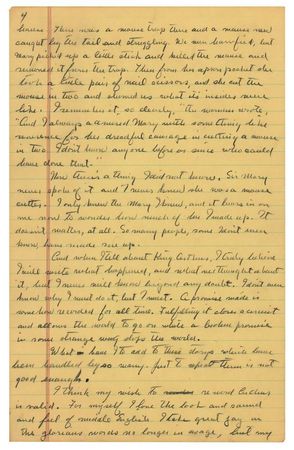 4
house. There was a mouse trap there and a mouse was
caught by the tail and struggling. We were horrified, but
Mary picked up a little stick and killed the mouse and
removed it from the trap. Then from her apron pocket she
took a little pair of nail scissors, and she cut the
mouse in two and showed us what its insides were
like. I remember it so clearly," the woman wrote,
"And I always a Mary with something like
reverence for her dreadful courage in cutting a mouse
in two. I don't know anyone before or since who could
have done that."
Now there's a thing I did not know. For Mary
never spoke of it and I never knew she was a mouse
cutter. I only knew the Mary I knew, and it bears in on
me now to wonder how much of her I made up. It
doesn't matter, at all. So many people, some I don't even
know, have made me up.
And when I tell about King Arthur, I truly believe
I will write what happened, and what men thought about
it, but I never will know beyond any doubt. I don't even
know why I must do it, but I must. A promise made is
somehow recorded for all time. Fulfilling it closes a circuit
and allows the world to go on while a broken promise
in some strange way stops the world.
What have I to add to these storys which have
been handled by so many. Just to repeat them is not
good enough.
I think my wish to record Arthur
is valid. For myself I love the look and sound
and feel of middle English. I take great joy in
the glorious words no longer in usage, but my